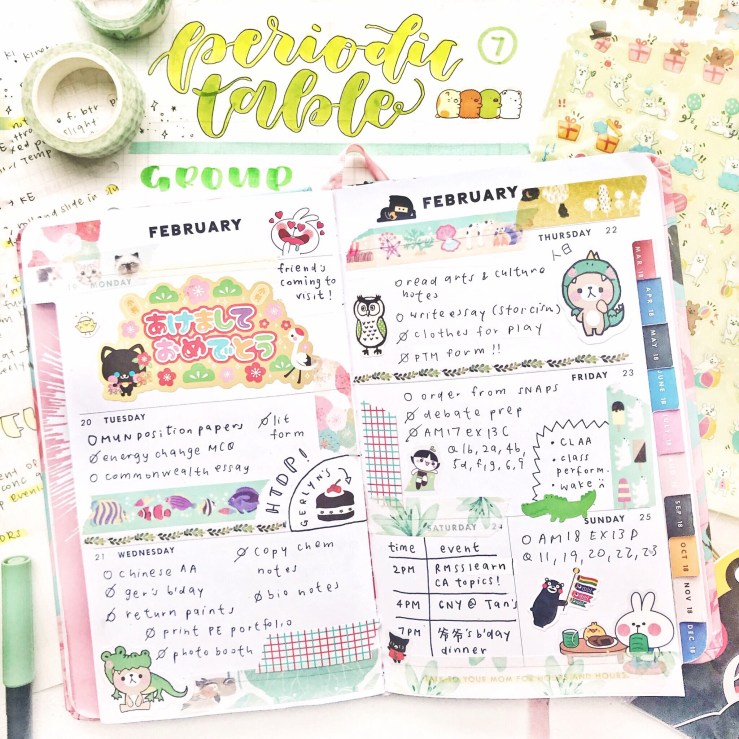 periodic
table
7
GROUP
FEBRUARY
MONDAY
friends
coming to
visit!
あけまして
おめでとう
20 TUESDAY
MUN position papers
energy change MCQ
commonwealth essay
lit
form
HTDP!
GERLYN'S
21 WEDNESDAY
Chinese AA
ger's b'day
return paints
print PE portfolio
photo booth
copy chem
notes
bio notes
FEBRUARY
THURSDAY 22
人日
read arts & culture
notes
write essay (stoicism)
clothes for play
PTM form!!
FRIDAY 23
order from SNAPS
debate prep
AM17 EX13C
Q 1b, 2a, 4b,
5d, f, g, 6, 9
• CLAA
• class
perform.
• wake
SATURDAY 24
time event
2PM RMSSlearn
CA topics!
4PM CNY @ Tan's
7PM 爷爷's b'day
dinner
SUNDAY 25
AM18 EX13D
Q 11, 19, 20, 22, 23
TALK TO YOUR MOM FOR HOURS AND HOURS.
MAR 18
APR 18
MAY 18
JUNE 18
SEP 18
OCT 18
NOV 18
DEC 18